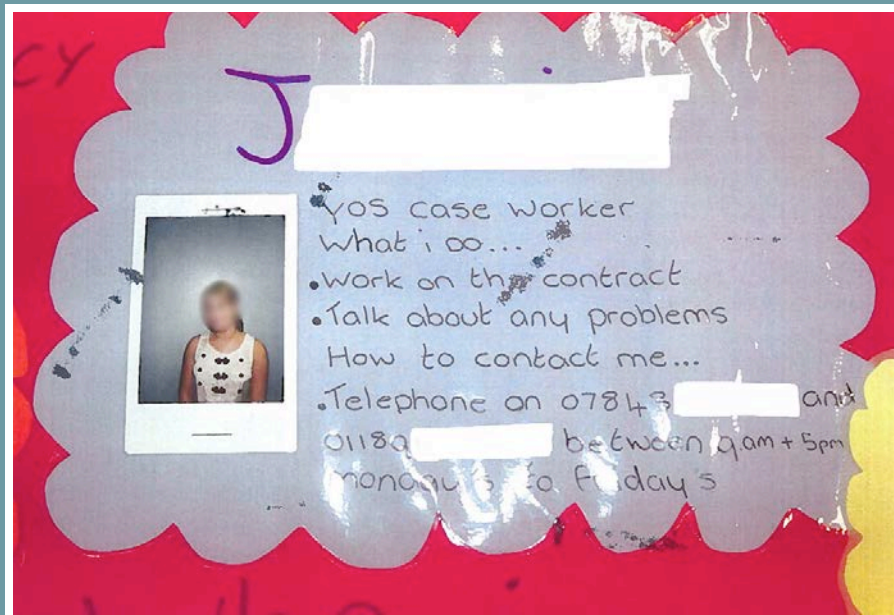 CY
J
YOS Case Worker
What i do...
• Work on the contract
• Talk about any problems
How to contact me...
• Telephone on 07843 and
01189 between 9am + 5pm
monday's to Friday's